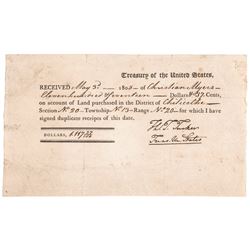 Treasury of the United States,
RECEIVED May 5th 1803 of Christian Myers
Eleven hundred & Seventeen Dollars & 37 Cents,
on account of Land purchased in the District of Chilicothe
Section No. 20 Township No. 13 Range No. 20 for which I have
signed duplicate receipts of this date.
DOLLARS, 1117 37/100
Tucker